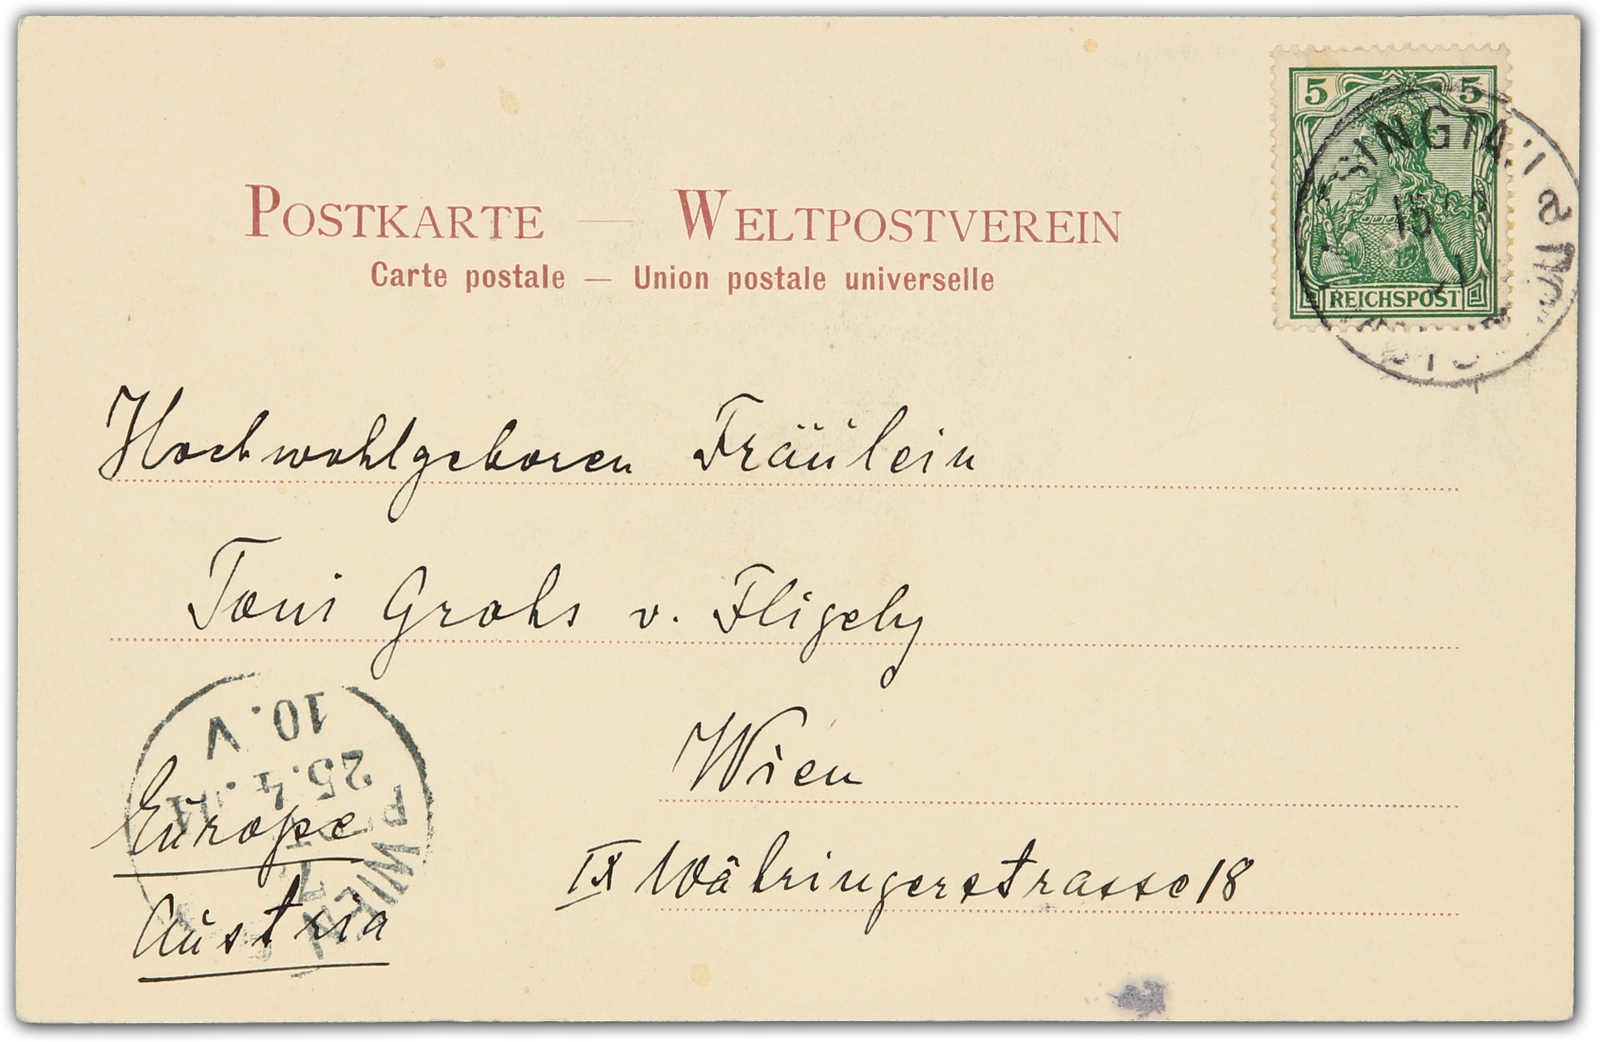 POSTKARTE — WELTPOSTVEREIN
Carte postale — Union postale universelle
5 5
REICHSPOST
Hochwohlgeboren Fräulein
Toni Grohs v. Fligely
Wien
IX Währingerstrasse 18
Europe
Austria
10.V
25.4.
WIEN